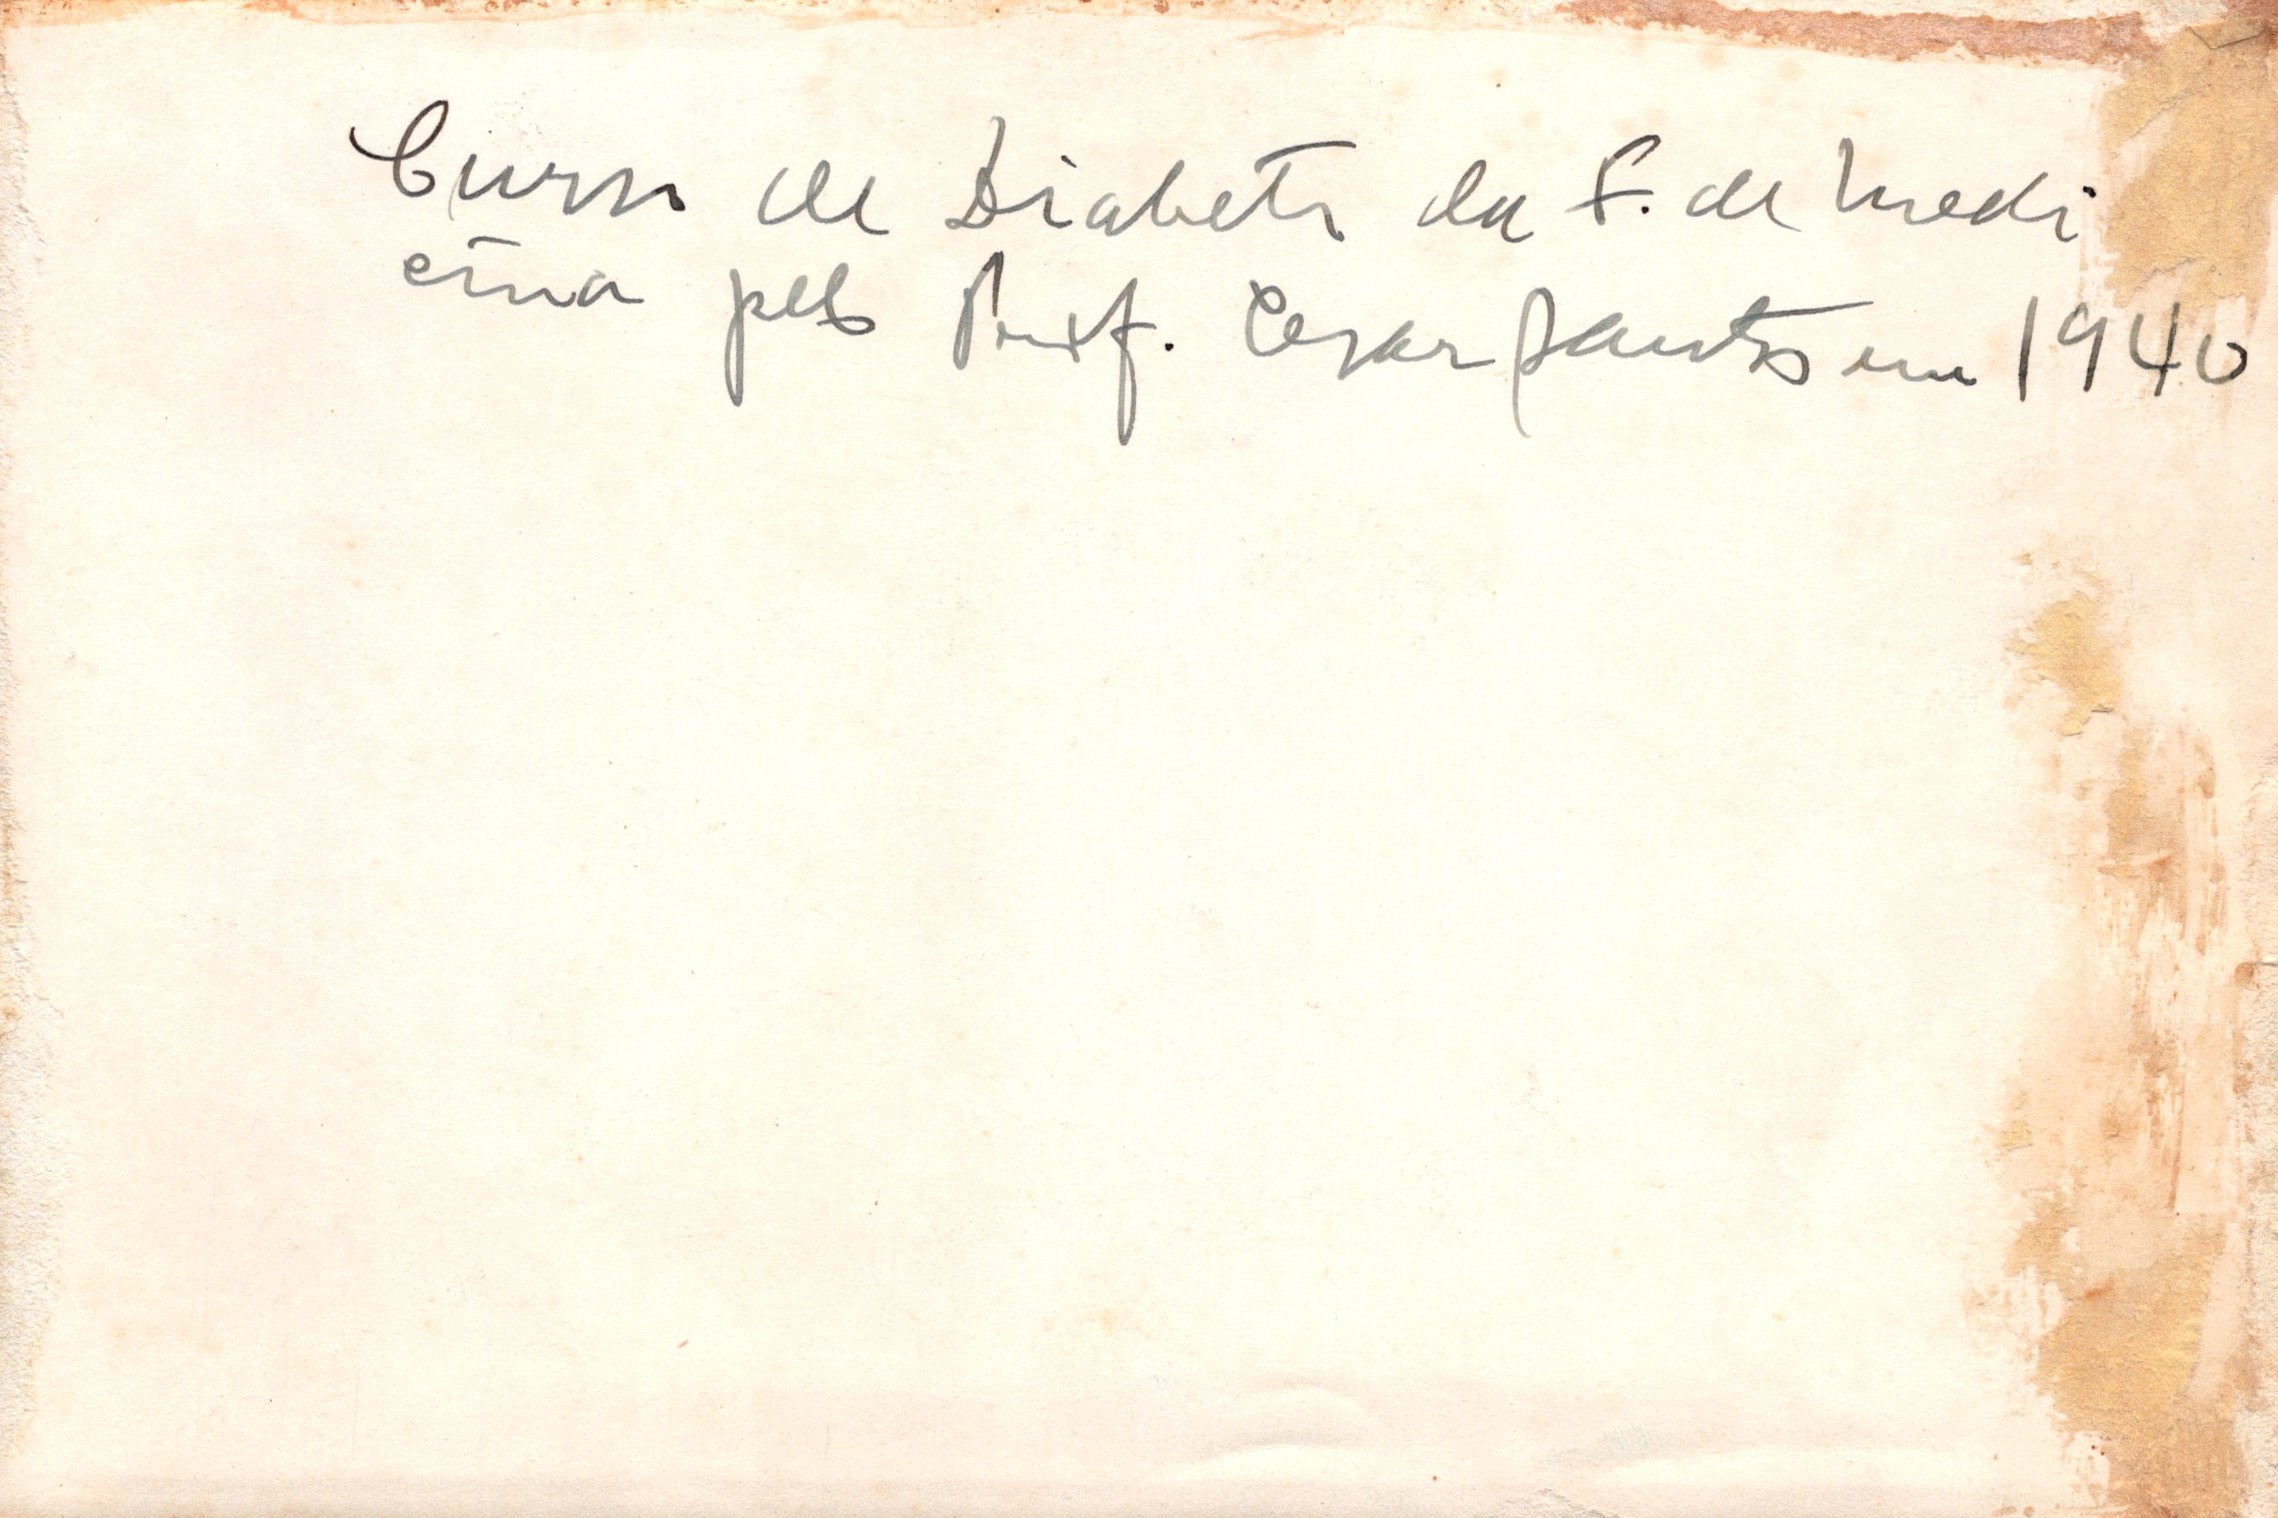 Curso de Diabete da F. de Medi
cina pelo Prof. Cesar Santos em 1940